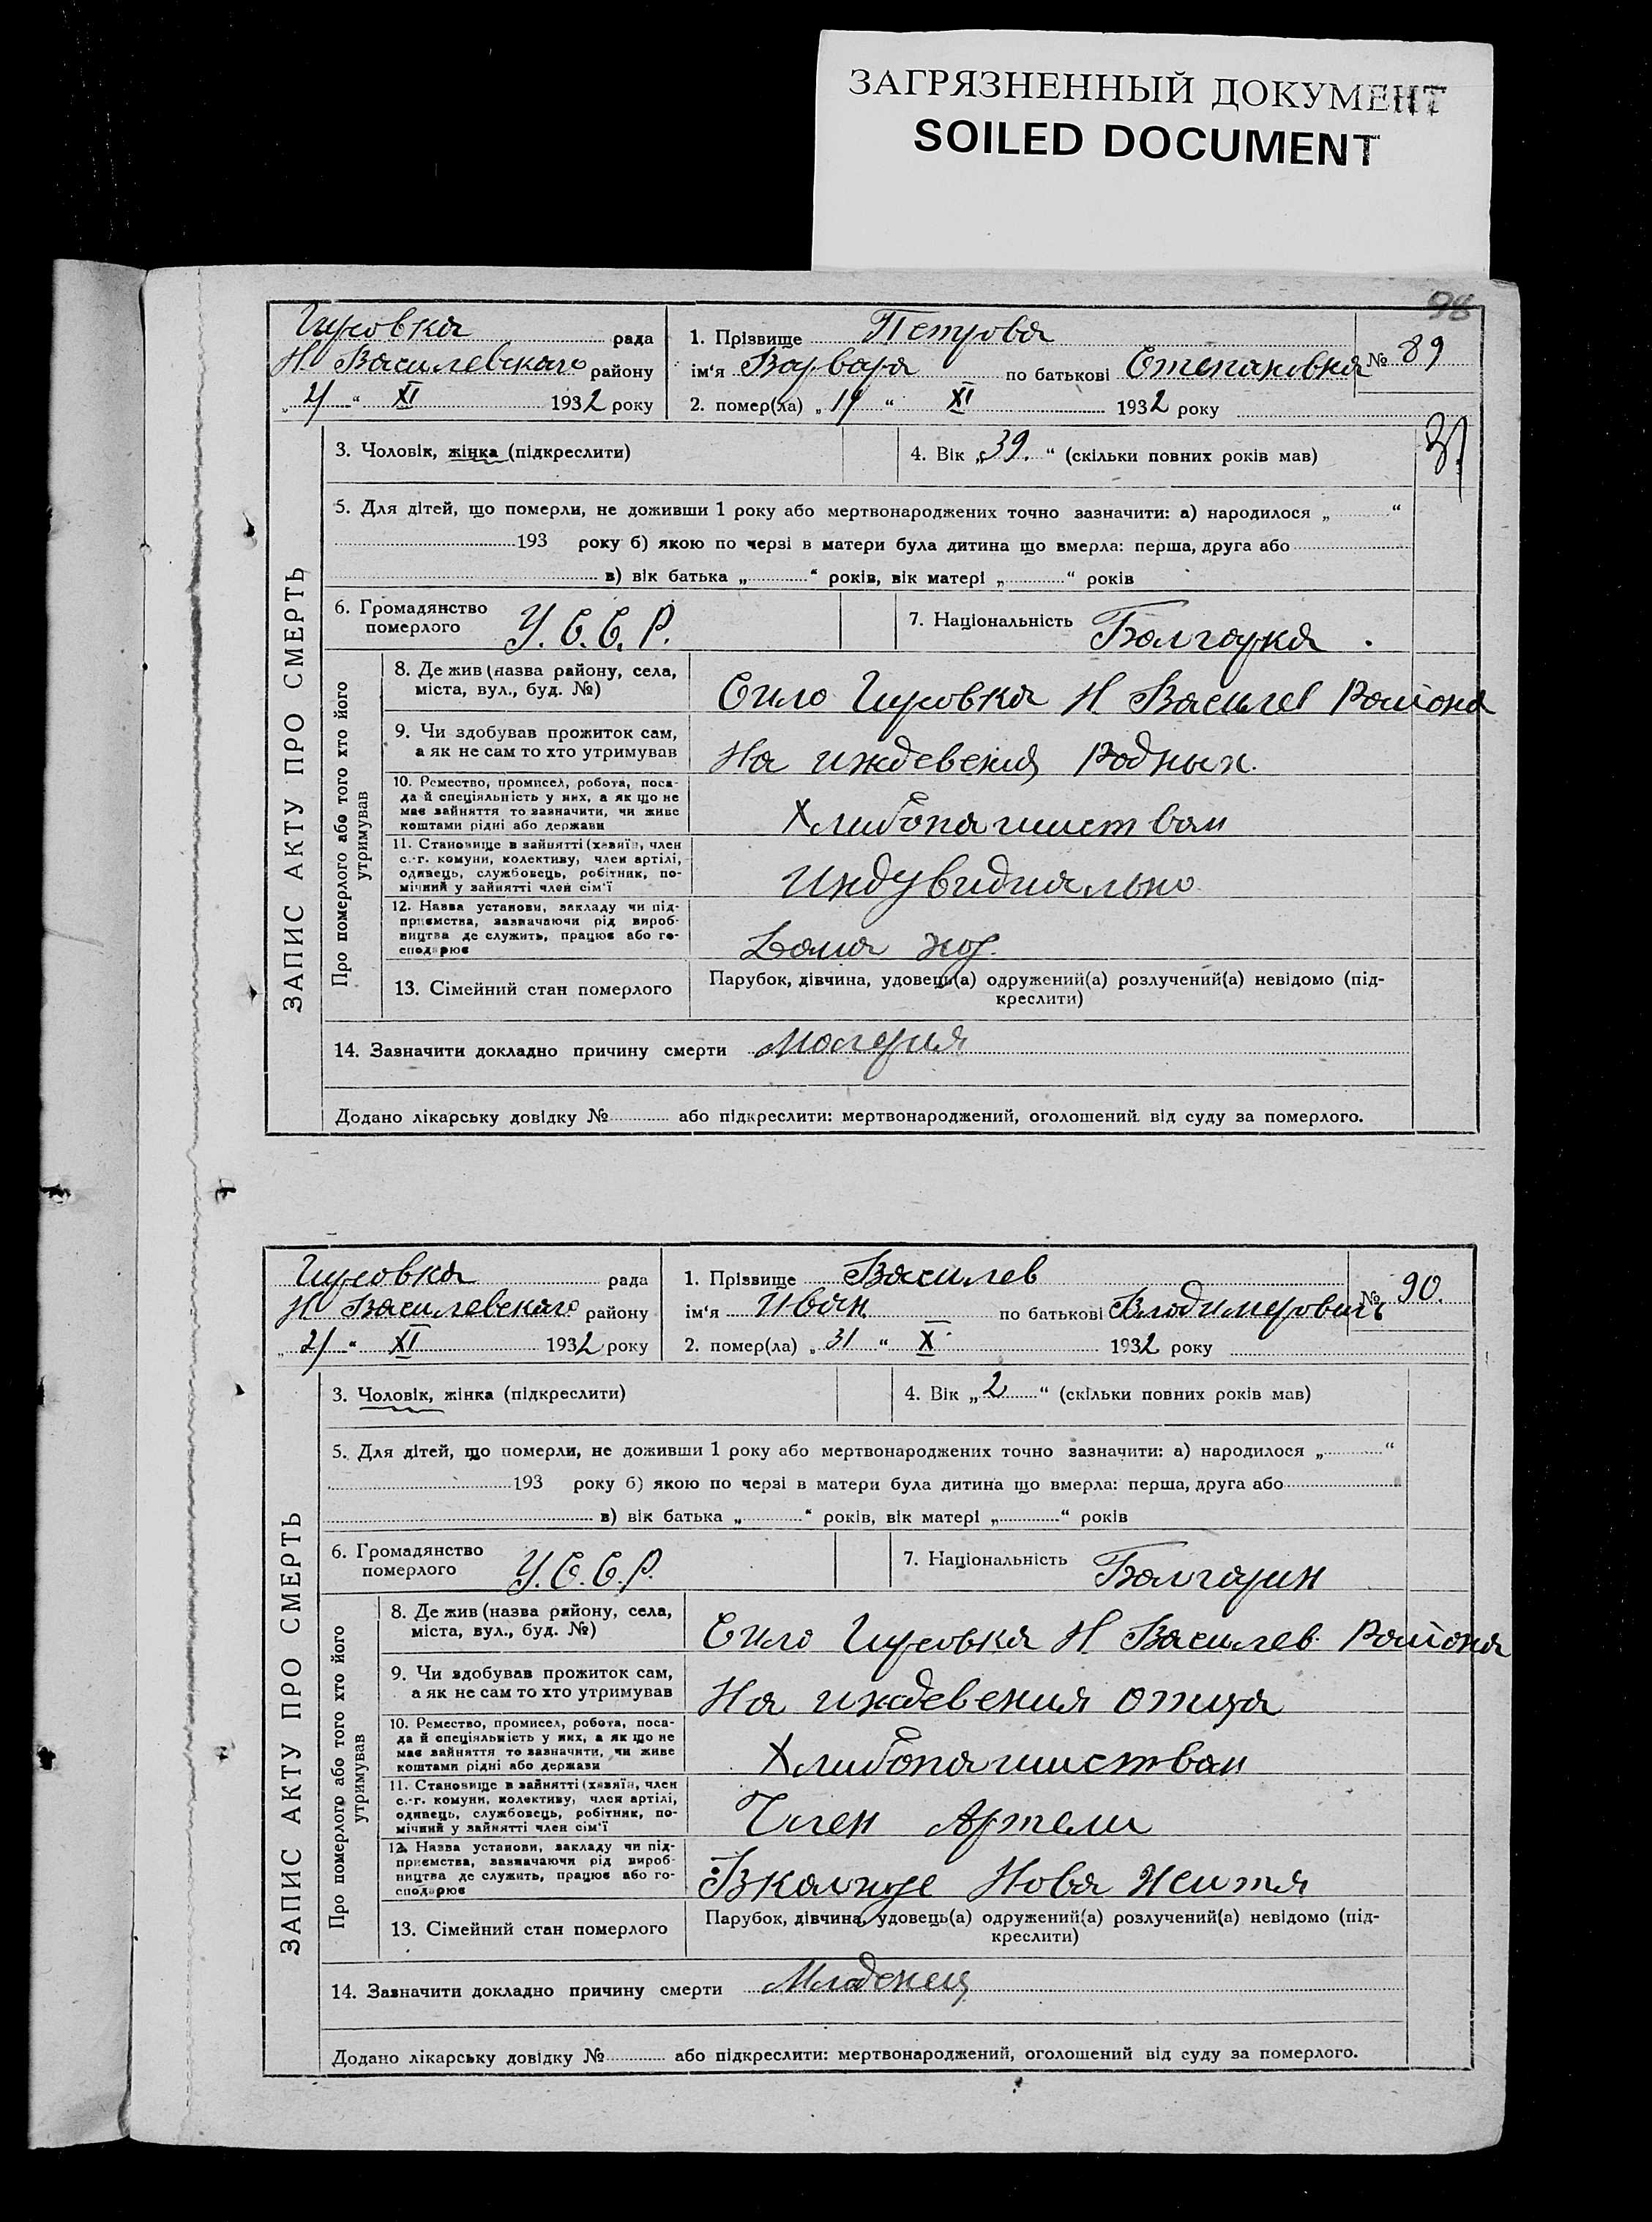 ЗАГРЯЗНЕННЫЙ ДОКУМЕНТ
SOILED DOCUMENT
98
Гировка рада
Н Василевскаго району
„ 21 “ XI 1932 року
1. Прізвище Петрова
ім‘я Варвара по батькові Степановна
№ 89
2. помер(ла) „ 19 “ XI 1932 року
3. Чоловік, жінка (підкреслити)
4. Вік „ 39. “ (скільки повних років мав)
5. Для дітей, що померли, не доживши 1 року або мертвонароджених точно зазначити: а) народилося „ “
193 року б) якою по черзі в матери була дитина що вмерла: перша, друга або
в) вік батька „ “ років, вік матері „ “ років
6. Громадянство
померлого
У.С.С.Р.
7. Національність Болгарка.
ЗАПИС АКТУ ПРО СМЕРТЬ
Про померлого або того хто його
утримував
8. Де жив (назва району, села,
міста, вул., буд. №)
Сило Гировка Н Василев Района
9. Чи здобував прожиток сам,
а як не сам то хто утримував
На иждевения Родных.
10. Ремество, промисел, робота, поса-
да й спеціяльність у них, а як що не
має зайняття то зазначити, чи живе
коштами рідні або держави
Хлибопашиством
11. Становище в зайнятті (хазяїн, член
с.-г. комуни, колективу, член артілі,
одинець, службовець, робітник, по-
мічний у зайнятті член сім‘ї
Индувидиально
12. Назва установи, закладу чи під-
приємства, зазначаючи рід вироб-
ництва де служить, працює або го-
сподарює
13. Сімейний стан померлого
Парубок, дівчина, удовець(а) одружений(а) розлучений(а) невідомо (під-
креслити)
14. Зазначити докладно причину смерти Молерия
Додано лікарську довідку № або підкреслити: мертвонароджений, оголошений від суду за померлого.
Гировка рада
Н Василевскаго району
„ 21 “ XI 1932 року
1. Прізвище Василев
ім‘я Иван. по батькові Влодимерович
№ 90.
2. помер(ла) „ 31 “ X 1932 року
3. Чоловік, жінка (підкреслити)
4. Вік „ 2 “ (скільки повних років мав)
5. Для дітей, що померли, не доживши 1 року або мертвонароджених точно зазначити: а) народилося „ “
193 року б) якою по черзі в матери була дитина що вмерла: перша, друга або
в) вік батька „ “ років, вік матері „ “ років
6. Громадянство
померлого
У.С.С.Р.
7. Національність Болгарин
ЗАПИС АКТУ ПРО СМЕРТЬ
Про померлого або того хто його
утримував
8. Де жив (назва району, села,
міста, вул., буд. №)
Сило Гировка Н Василев. Района
9. Чи здобував прожиток сам,
а як не сам то хто утримував
На иждевения отца
10. Ремество, промисел, робота, поса-
да й спеціяльність у них, а як що не
має зайняття то зазначити, чи живе
коштами рідні або держави
Хлибопашиством
11. Становище в зайнятті (хазяїн, член
с.-г. комуни, колективу, член артілі,
одинець, службовець, робітник, по-
мічний у зайнятті член сім‘ї
Член Артели
12. Назва установи, закладу чи під-
приємства, зазначаючи рід вироб-
ництва де служить, працює або го-
сподарює
Вколгозе Нова Жития
13. Сімейний стан померлого
Парубок, дівчина, удовець(а) одружений(а) розлучений(а) невідомо (під-
креслити)
14. Зазначити докладно причину смерти Младенец
Додано лікарську довідку № або підкреслити: мертвонароджений, оголошений від суду за померлого.